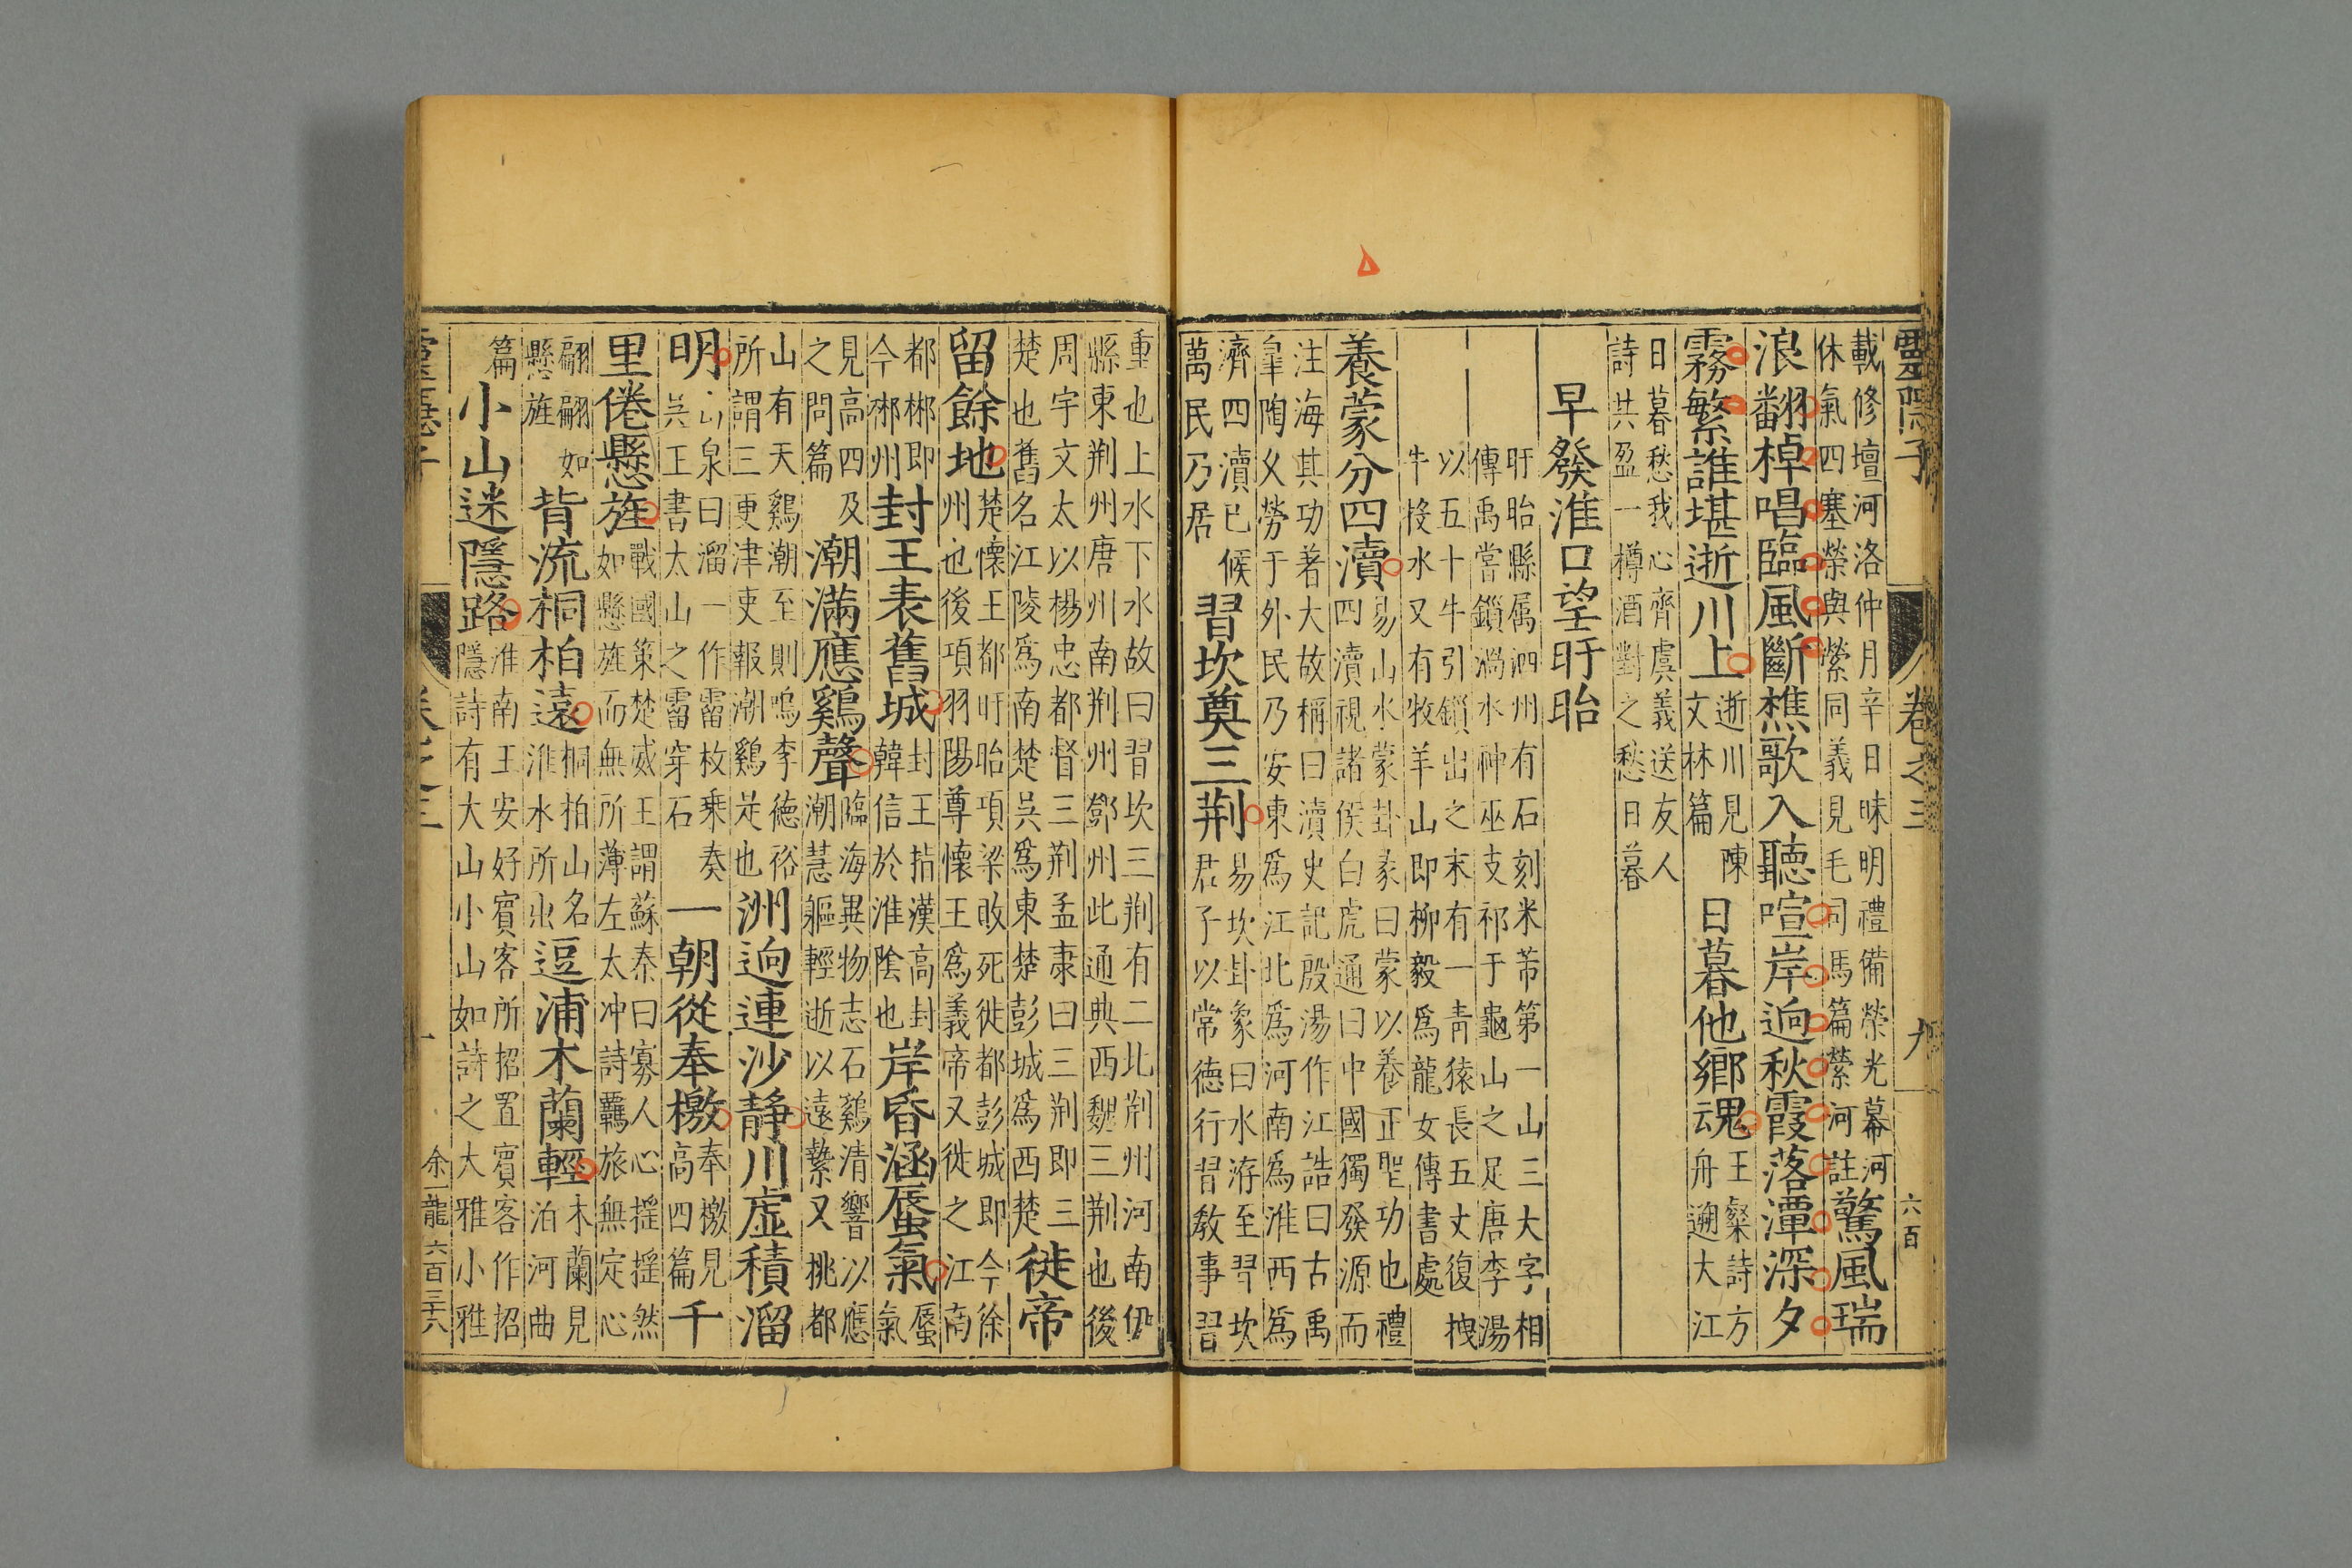 靈隱子
卷之三
九
六百
載修壇河洛仲月辛日昧明禮備榮光幕河
休氣四塞榮與縈同義見毛司馬篇縈河註
驚風瑞
浪翻棹唱臨風斷樵歌入聽喧岸迥秋霞落潭深夕
霧繁誰堪逝川上
逝川見陳
文林篇
日暮他鄉魂
王粲詩方
舟遡大江
日暮愁我心齊虞義送友人
詩共盈一樽酒對之愁日暮
早發淮口望盱眙
盱眙縣属泗州有石刻米芾第一山三大字相
傳禹嘗鎖渦水神巫支祁于龜山之足唐李湯
以五十牛引鎖出之末有一青猿長五丈復拽
牛投水又有牧羊山即柳毅爲龍女傳書處
養蒙分四瀆
易山水蒙卦彖曰蒙以養正聖功也禮
四瀆視諸侯白虎通曰中國獨發源而
注海其功著大故稱曰瀆史記殷湯作江誥曰古禹
皐陶乂勞于外民乃安東爲江北爲河南爲淮西爲
濟四瀆已候
萬民乃居
習坎奠三荆
易坎卦象曰水洊至習坎
君子以常德行習敎事習
重也上水下水故曰習坎三荆有二北荆州河南伊
縣東荆州唐州南荆州鄧州此通典西魏三荆也後
周宇文太以楊忠都督三荆孟康曰三荆即三
楚也舊名江陵爲南楚吳爲東楚彭城爲西楚
徙帝
留餘地
楚懷王都盱眙項梁敗死徙都彭城即今徐
州也後項羽陽尊懷王爲義帝又徙之江南
都郴即
今郴州
封王表舊城
封王拈漢高封
韓信於淮陰也
岸昏涵蜃氣
蜃
氣
見高四及
之問篇
潮滿應鷄聲
臨海異物志石鷄清響以應
潮慧軀輕逝以遠縶又挑都
山有天鷄潮至則鳴李德裕
所謂三更津吏報潮鷄是也
洲迥連沙静川虚積溜
明
山泉曰溜一作霤枚乗奏
吳王書太山之霤穿石
一朝從奉檄
奉檄見
高四篇
千
里倦懸旌
戰國策楚威王謂蘇秦曰寡人心揺揺然
如懸旌而無所薄左太冲詩覊旅無定心
翩翩如
懸旌
背流桐柏遠
桐柏山名
淮水所出
逗浦木蘭輕
木蘭見
泊河曲
篇
小山迷隱路
淮南王安好賓客所招置賓客作招
隱詩有大山小山如詩之大雅小雅
余一龍
六百三十六